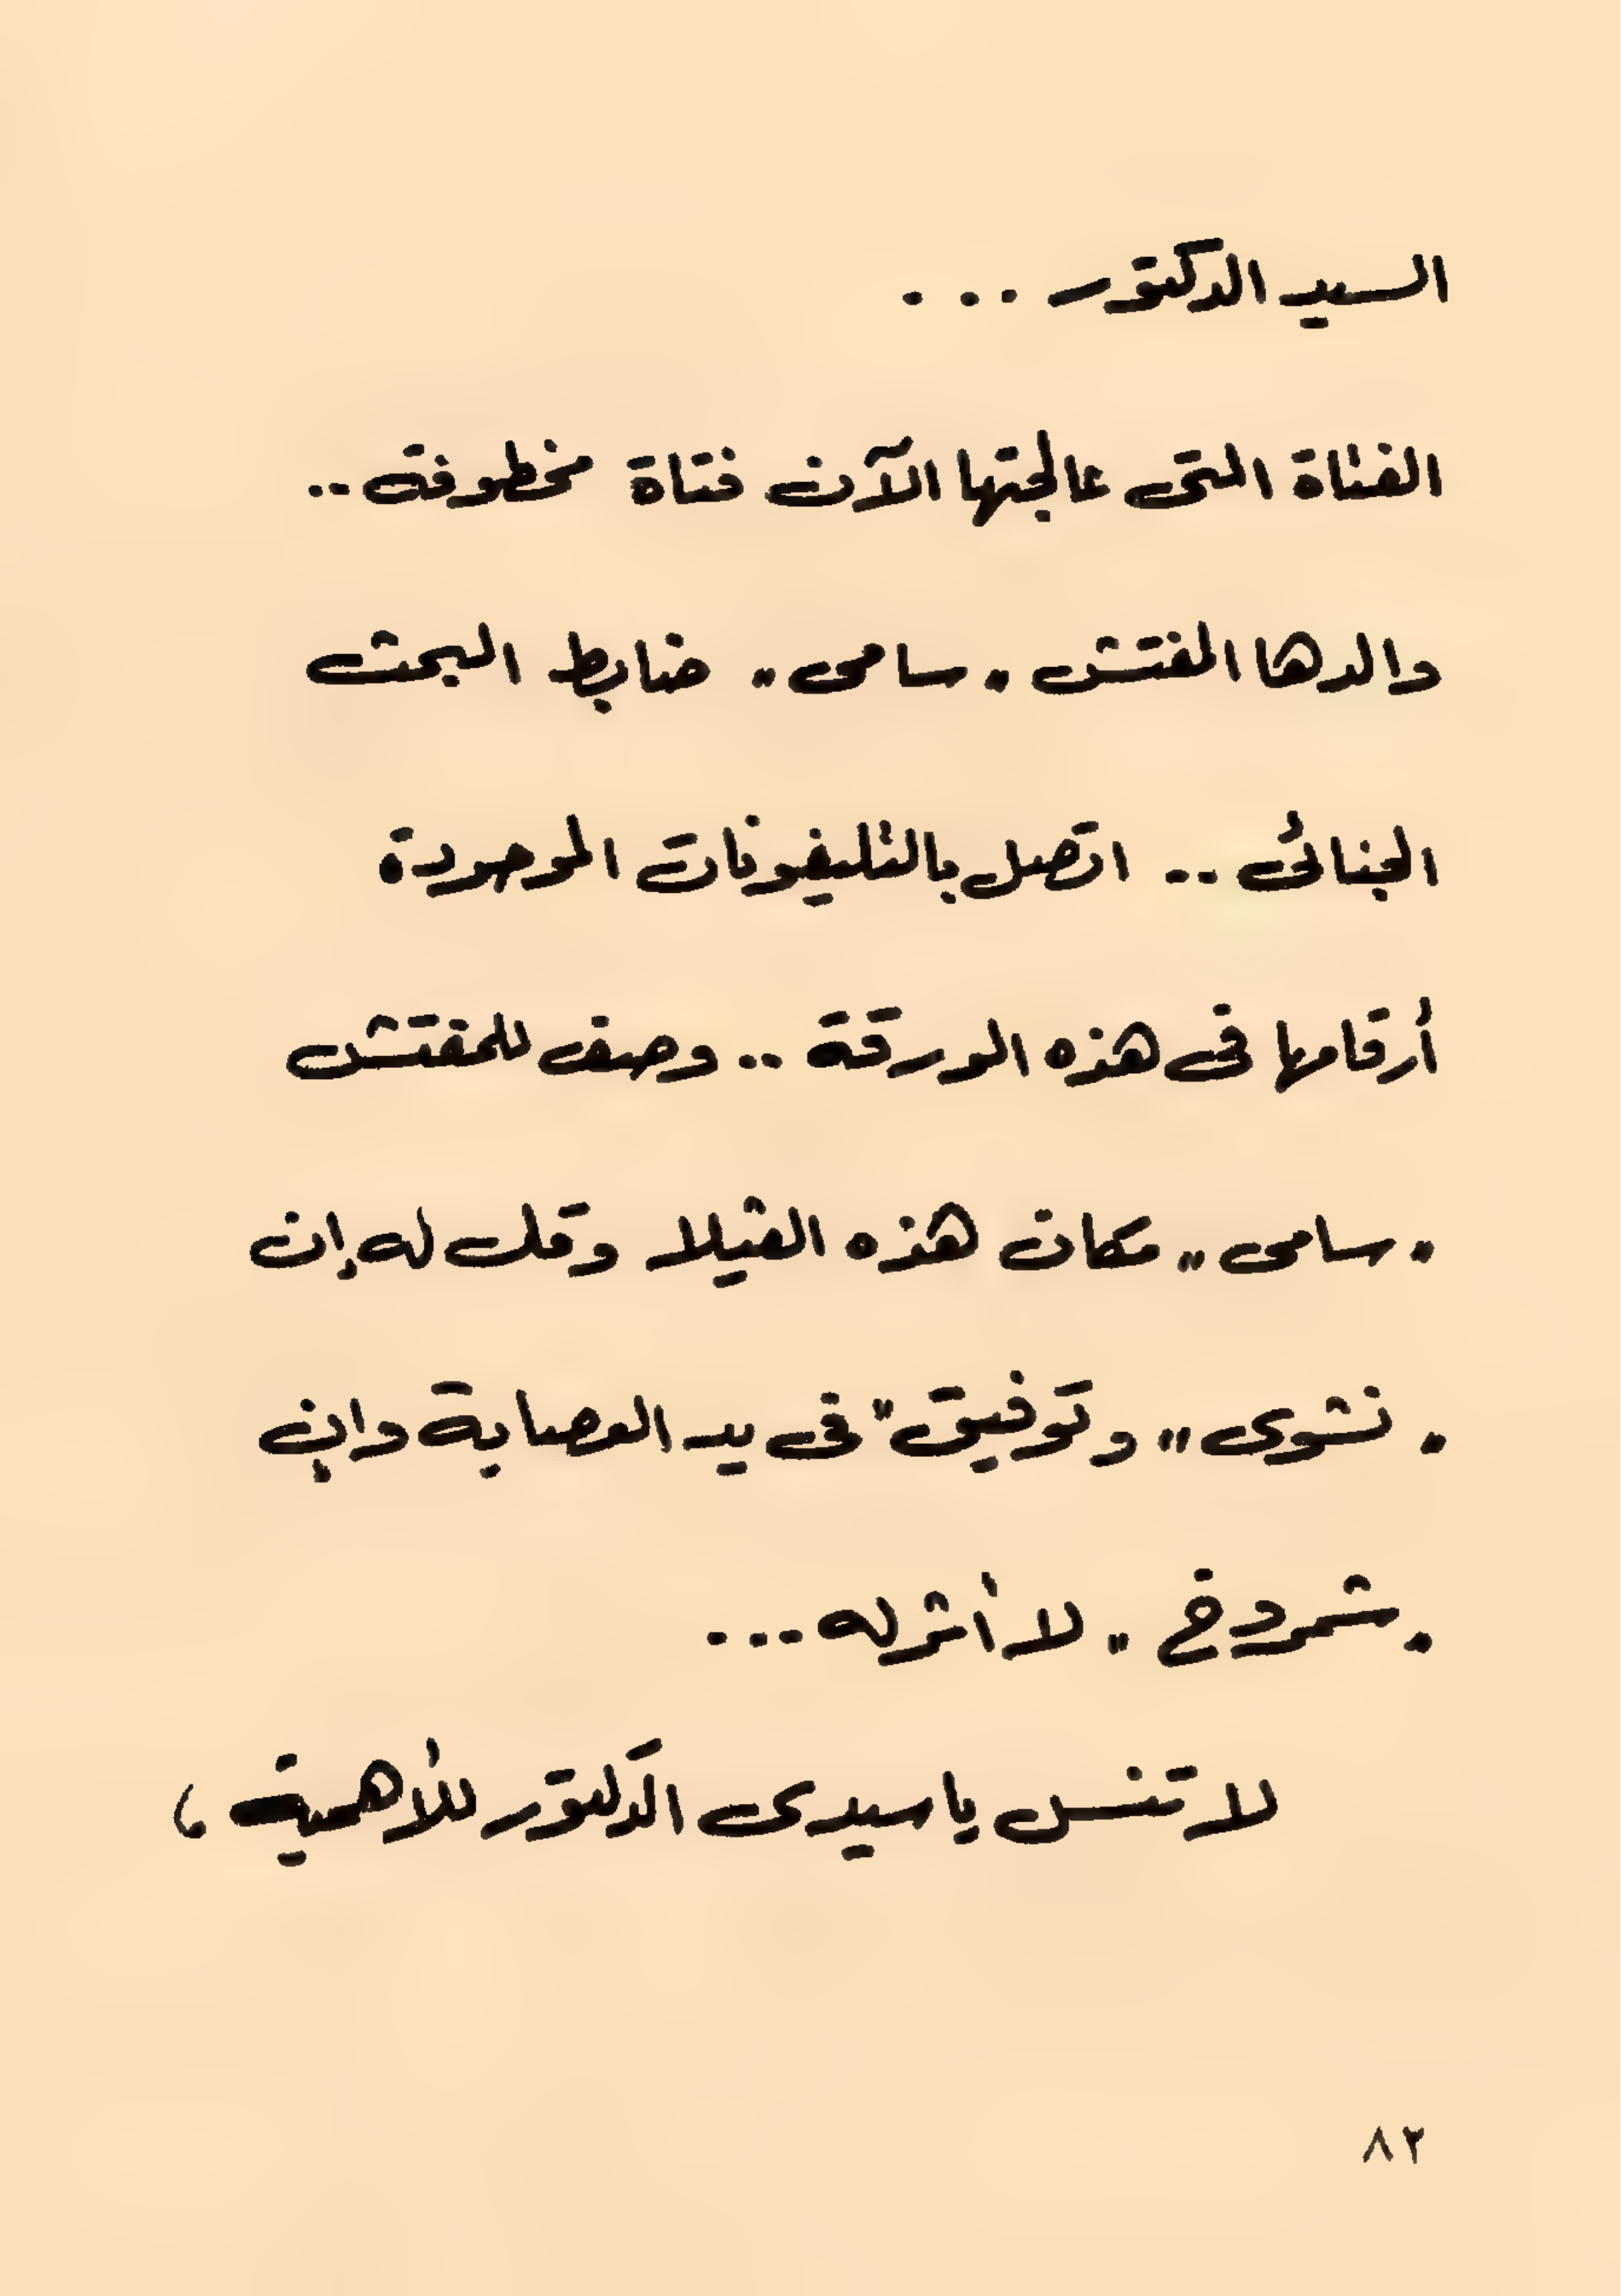 السيد الدكتور ...
الفتاة التى عالجتها الآن فتاة مخطوفة ..
والدها المفتش "سامى" ضابط البحث
الجنائى .. اتصل بالتليفونات الموجودة
أرقامها فى هذه الورقة .. وصف للمفتش
"سامى" مكان هذه الفيلا وقل له إن
"نشوى" و"توفيق" فى يد العصابة وإن
"شمردخ" لا أثر له ...
لا تنس يا سيدى الدكتور للأهمية ،
٨٢